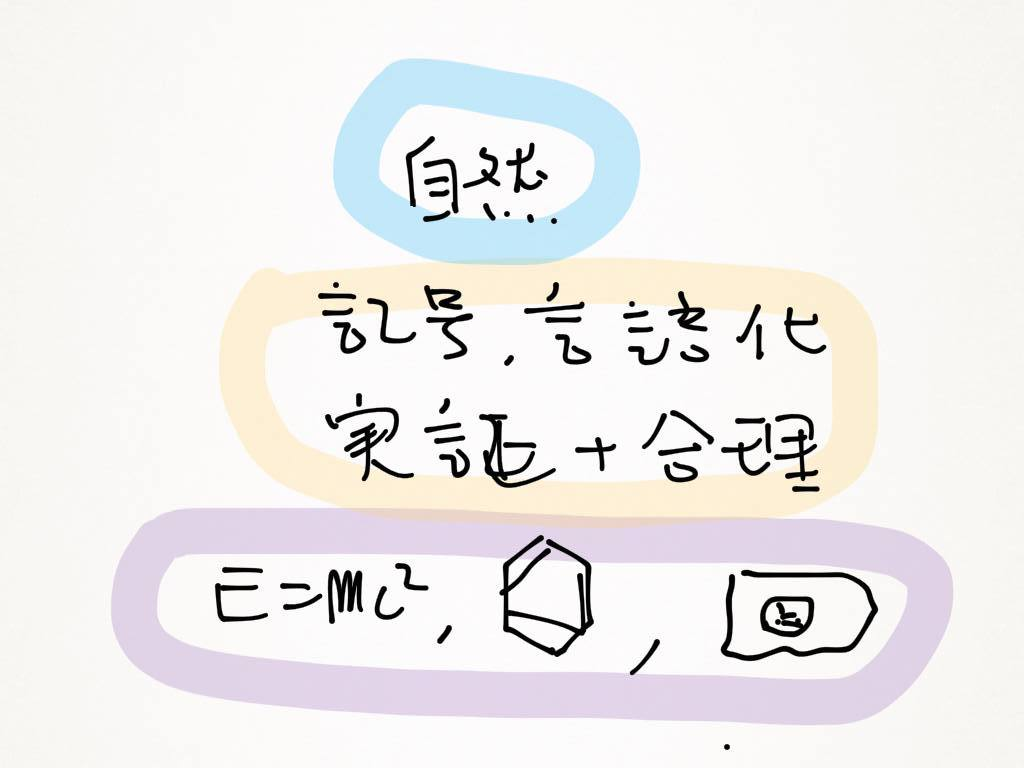 自然
記号,言語化
実証+合理
E=mc²,